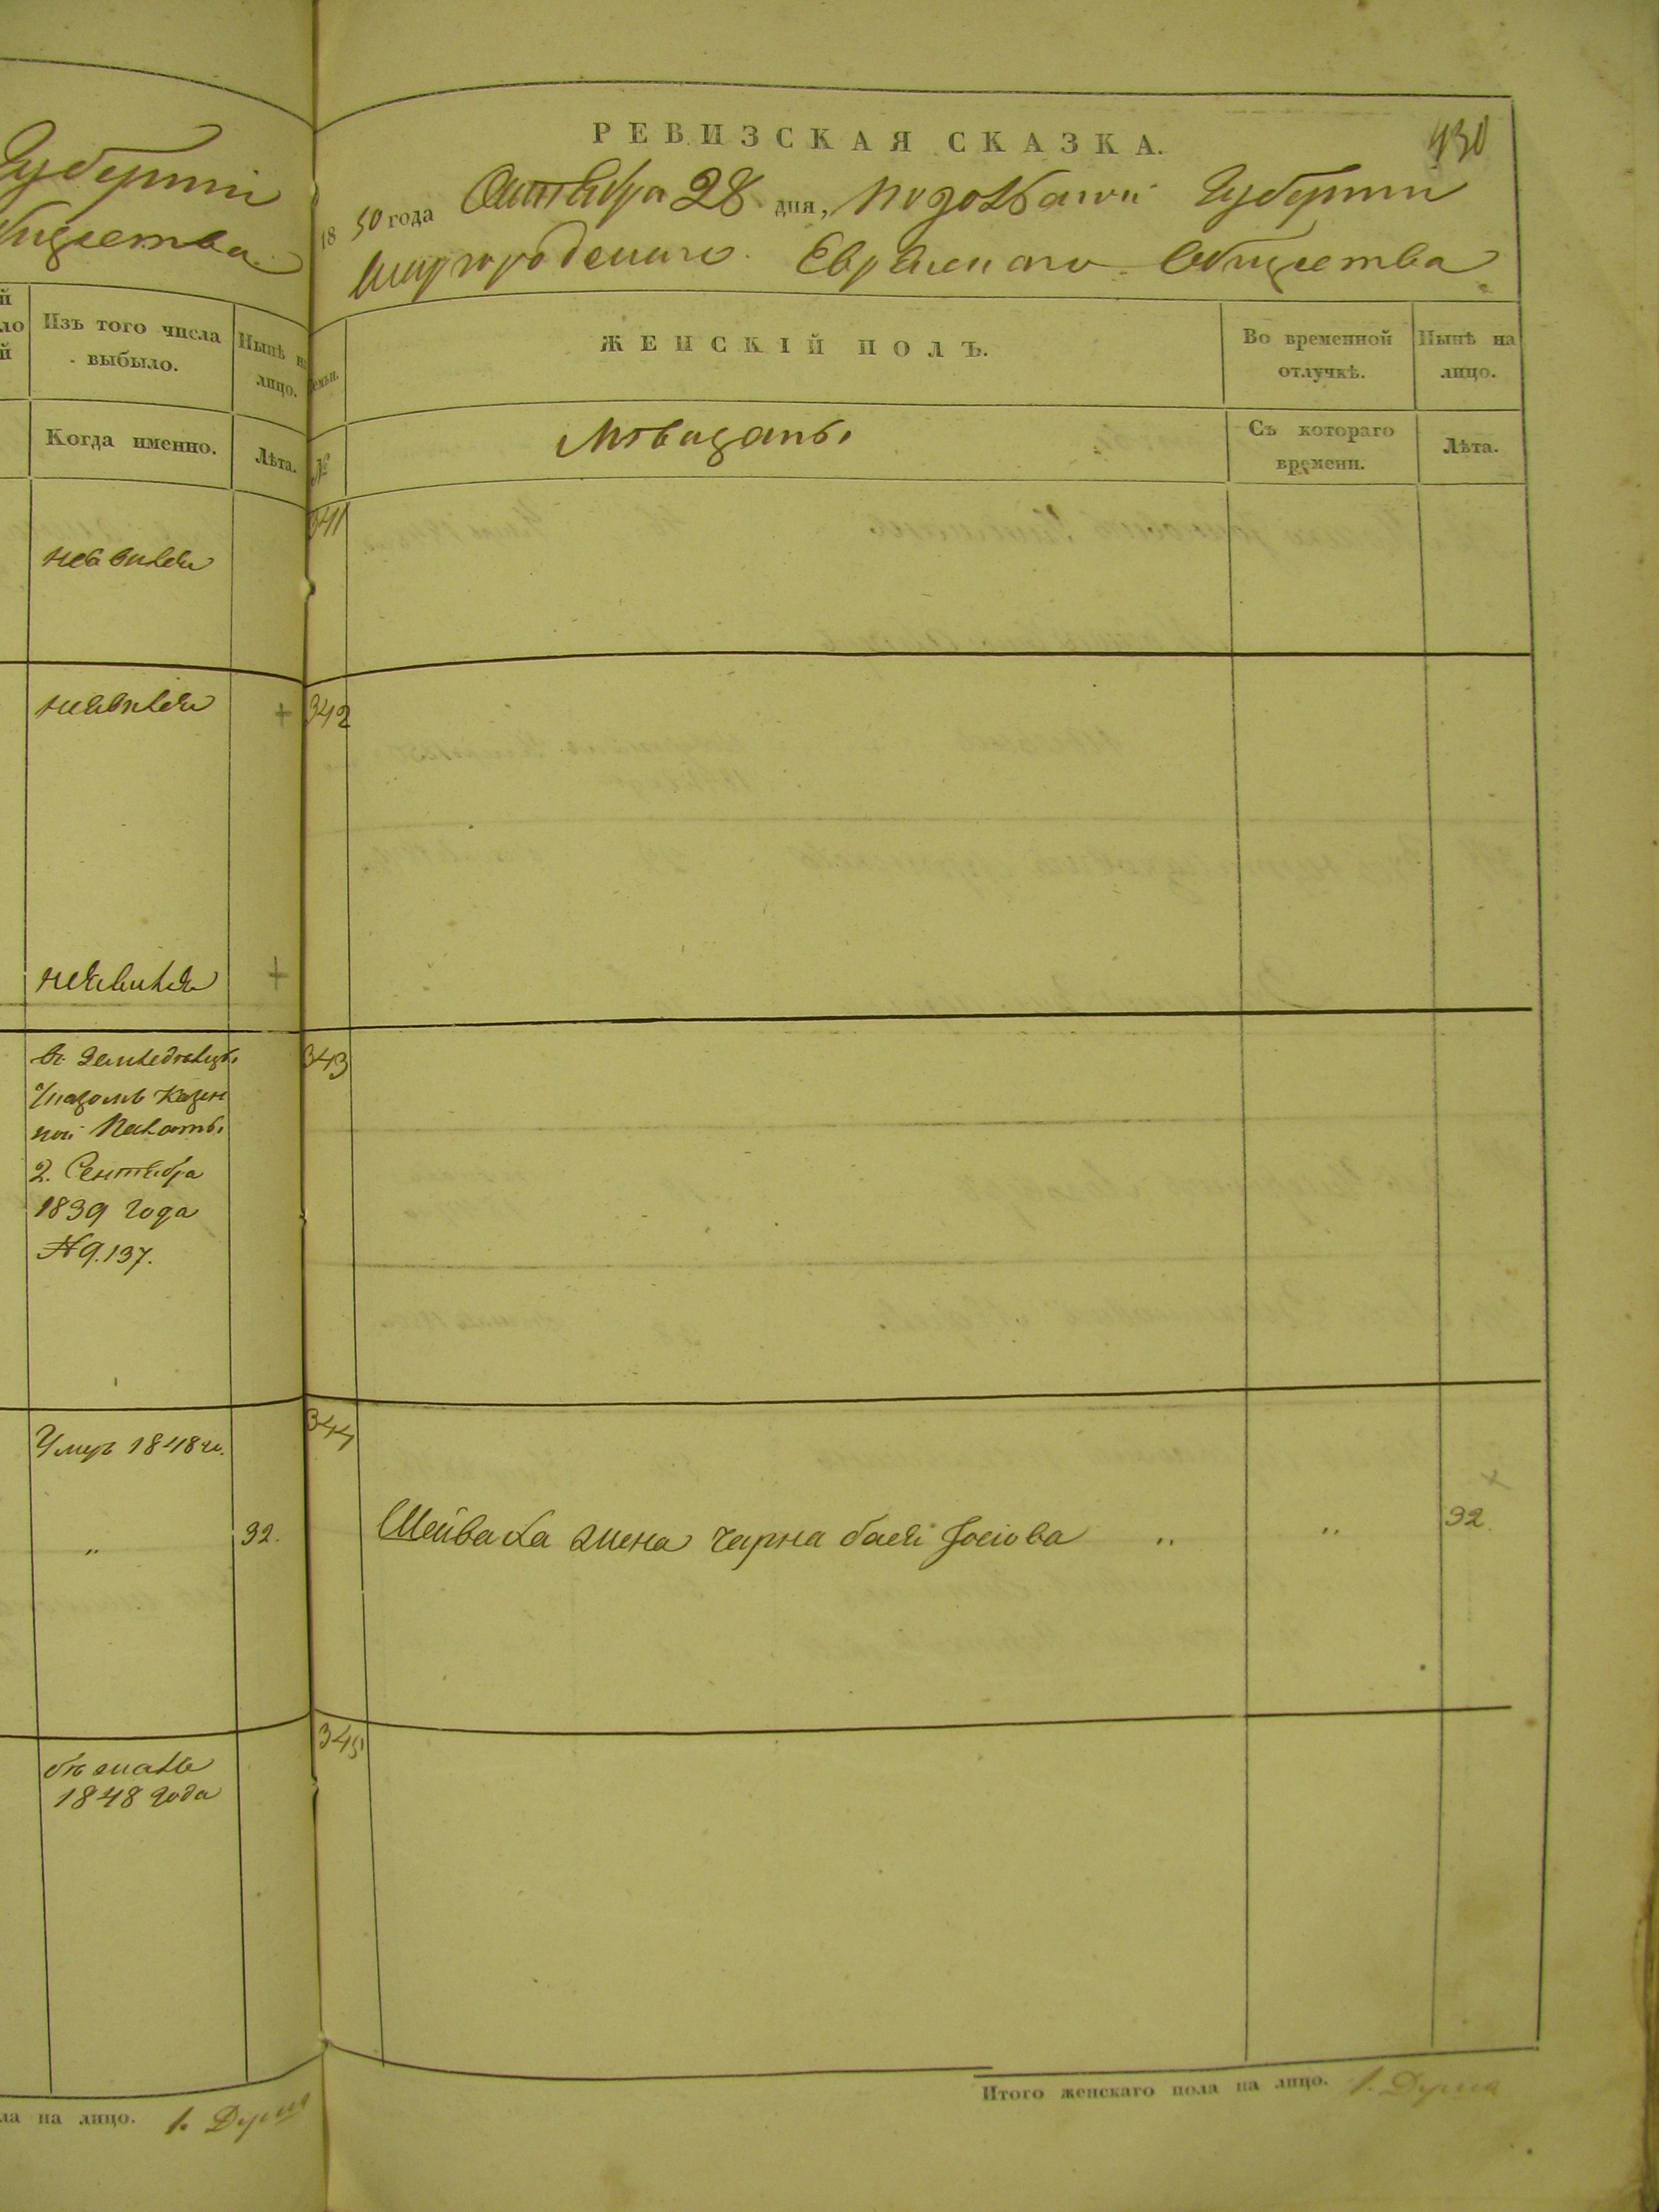 Губерніи
Общества
Изъ того числа
выбыло.
Нынѣ на
лицо.
Когда именно.
Лѣта.
неявился
неявился
неявился
въ Земледѣльцы
Указомъ Казен
ной Палаты
2. Сентября
1839 года
№ 9.137.
Умеръ 1848 г.
„ 32.
бѣжалъ
1848 года
на лицо. 1. Душа
430
РЕВИЗСКАЯ СКАЗКА.
1850 года Октября 28 дня, Подольской Губерніи
Шаргородскаго Еврейскаго Общества
Семьи.
ЖЕНСКІЙ ПОЛЪ.
Во временной
отлучкѣ.
Нынѣ на
лицо.
№
Мѣщаны
Съ котораго
времени.
Лѣта.
341
342
343
344
Шейвала жена Чарна бася Іосіова „ „ 32.
345
Итого женскаго пола на лицо. 1. Душа